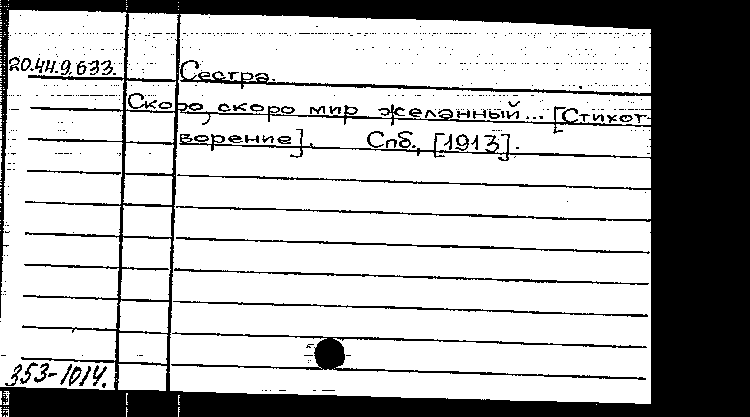 20.44.9.633. Сестра.
Скоро, скоро мир желанный... [Стихот-
ворение]. Спб., [1913].
353-1014.